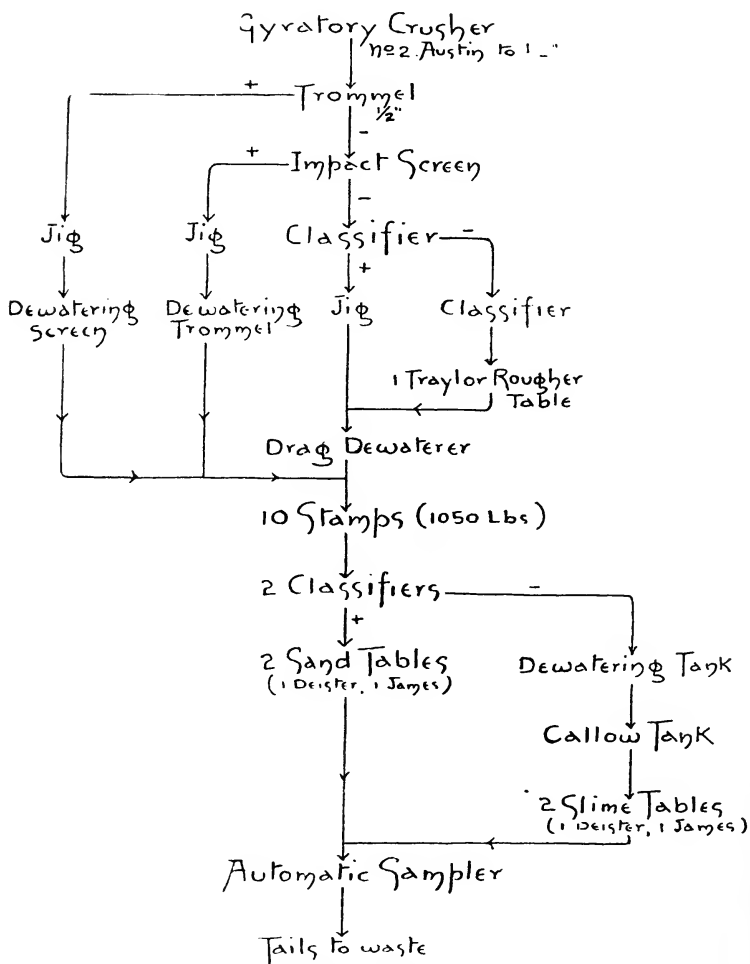 Gyratory Crusher
No 2. Austin to 1 - "
+
Trommel
1/2"
-
+
Impact Screen
-
Jig
Jig
Classifier
-
+
Dewatering
Screen
Dewatering
Trommel
Jig
Classifier
1 Traylor Rougher
Table
Drag Dewaterer
10 Stamps (1050 Lbs)
2 Classifiers
-
+
2 Sand Tables
(1 Deister, 1 James)
Dewatering Tank
Callow Tank
2 Slime Tables
(1 Deister, 1 James)
Automatic Sampler
Tails to waste